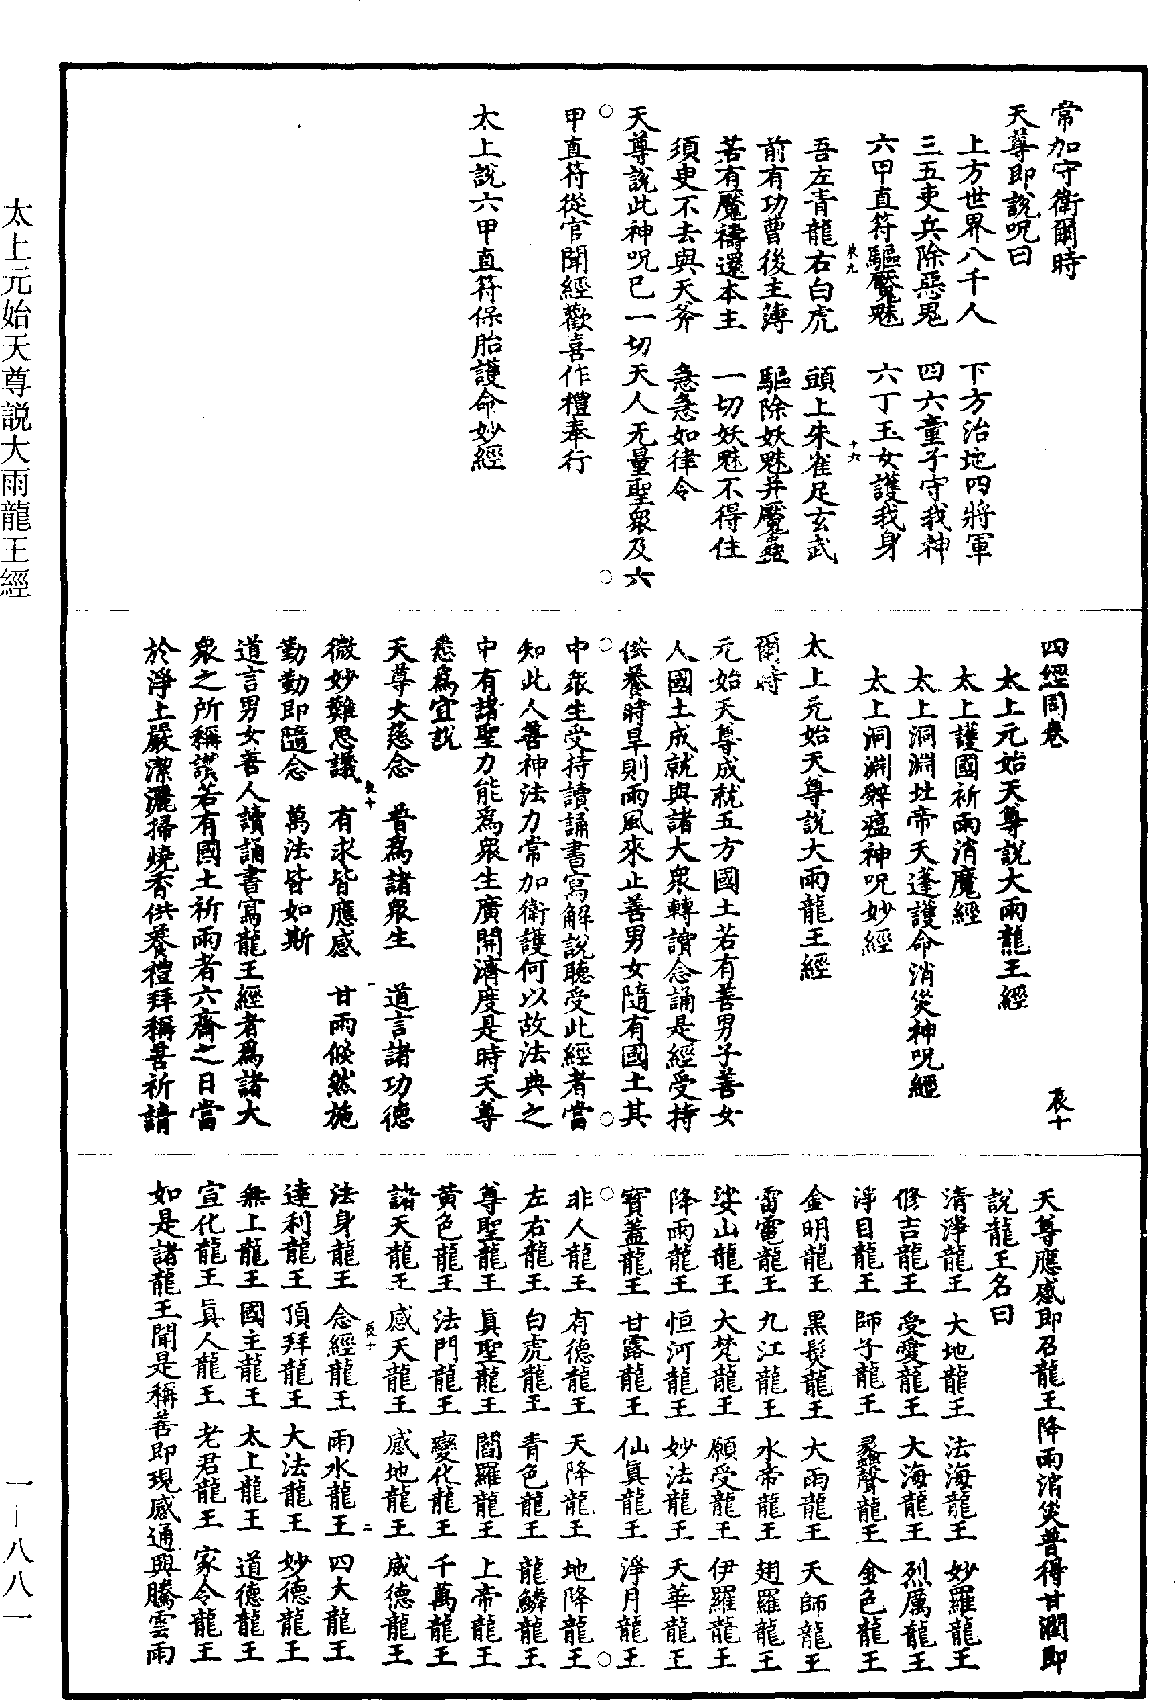 常加守衛爾時
天尊即說呪曰
上方世界八千人　下方治地四將軍
三五吏兵除惡鬼　四六童子守我神
六甲直符驅魘魅　六丁玉女護我身
辰九　十六
吾左青龍右白虎　頭上朱雀足玄武
前有功曹後主薄　驅除妖魅并魘蠱
若有魘禱還本主　一切妖魅不得住
須臾不去與天斧　急急如律令
天尊說此神呪已一切天人无量聖眾及六
甲直符從官聞經歡喜作禮奉行
太上說六甲直符保胎護命妙經
四經同卷　辰十
太上元始天尊說大雨龍王經
太上護國祈雨消魔經
太上洞淵北帝天蓬護命消災神呪經
太上洞淵辭瘟神呪妙經
太上元始天尊說大雨龍王經
爾時
元始天尊成就五方國土若有善男子善女
人國土成就與諸大眾轉讀念誦是經受持
供養時旱則雨風來止善男女隨有國土其
中眾生受持讀誦書寫解說聽受此經者當
知此人善神法力常加衛護何以故法典之
中有諸聖力能為眾生廣開濟度是時天尊
悉為宣說
天尊大慈念　普為諸眾生　道言諸功德
辰十　一
微妙難思議　有求皆應感　甘雨倏然施
勤勤即隨念　萬法皆如斯
道言男女善人讀誦書寫龍王經者為諸大
眾之所稱讚若有國土祈雨者六齋之日當
於淨土嚴潔灑掃燒香供養禮拜稱善祈請
天尊應感即召龍王降雨消災普得甘潤即
說龍王名曰
清淨龍王　大地龍王　法海龍王　妙羅龍王
修吉龍王　受愛龍王　大海龍王　烈厲龍王
淨目龍王　師子龍王　蠡聲龍王　金色龍王
金明龍王　黑髮龍王　大雨龍王　天師龍王
雷電龍王　九江龍王　水帝龍王　翅羅龍王
娑山龍王　大梵龍王　願受龍王　伊羅龍王
降雨龍王　恒河龍王　妙法龍王　天華龍王
寶蓋龍王　甘露龍王　仙真龍王　淨月龍王
非人龍王　有德龍王　天降龍王　地降龍王
左右龍王　白虎龍王　青色龍王　龍鱗龍王
尊聖龍王　真聖龍王　閻羅龍王　上帝龍王
黃色龍王　法門龍王　變化龍王　千萬龍王
諸天龍王　感天龍王　感地龍王　威德龍王
辰十　二
法身龍王　念經龍王　雨水龍王　四大龍王
達利龍王　頂拜龍王　大法龍王　妙德龍王
無上龍王　國主龍王　太上龍王　道德龍王
宣化龍王　真人龍王　老君龍王　家令龍王
如是諸龍王聞是稱善即現感通興騰雲雨
太上元始天尊説大雨龍王經
一—八八一